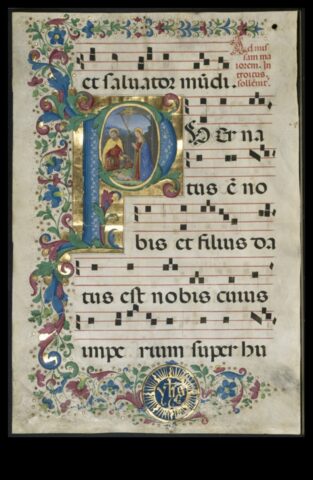 Ad mis
sam ma
iorem. In
troitus.
et saluator mūdi.
PUer na
tus ē no
bis et filius da
tus est nobis cuius
impe rium super hu
yhs